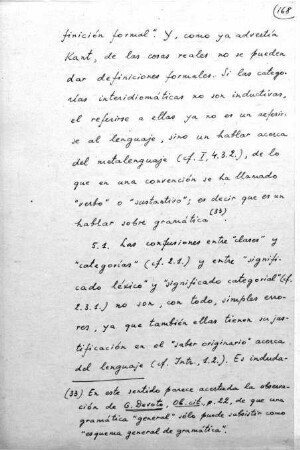 168
finición formal". Y, como ya advertía
Kant, de las cosas reales no se pueden
dar definiciones formales. Si las catego-
rías interidiomáticas no son inductivas,
el referirse a ellas ya no es un referir-
se al lenguaje, sino un hablar acerca
del metalenguaje (cf. I, 4.3.2.), de lo
que en una convención se ha llamado
"verbo" o "sustantivo"; es decir que es un
hablar sobre gramática".(33)
5.1. Las confusiones entre "clases" y
"categorías" (cf. 2.1.) y entre "signifi-
cado léxico" y "significado categorial" (cf.
2.3.1.) no son, con todo, simples erro-
res, ya que también ellas tienen su jus-
tificación en el "saber originario" acerca
del lenguaje (cf. Intr., 1.2.). Es induda-
(33) En este sentido parece acertada la observa-
ción de G. Devoto, Ob. cit., p. 22, de que una
gramática "general" sólo puede subsistir como
"esquema general de gramática".